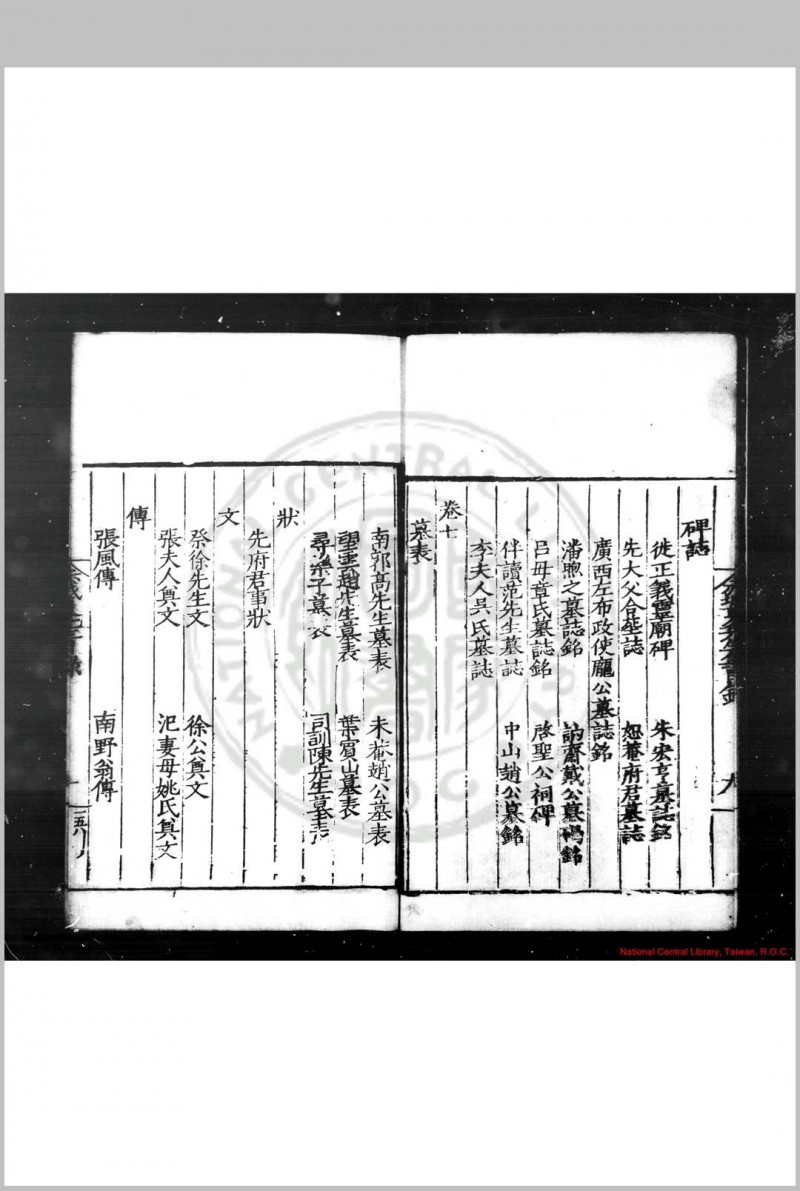 碑誌
徙正義靈廟碑　朱宏亨墓誌銘
先大父合塟誌　恕菴府君墓誌
廣西左布政使龐公墓誌銘
潘煦之墓誌銘　訥齋戴公墓碣銘
呂母章氏墓誌銘　啓聖公祠碑
伴讀范先生墓誌　中山趙公墓銘
李夫人吳氏墓誌
卷七
墓表
南郭高先生墓表　未菴趙公墓表
望雲趙先生墓表　葉賓山墓表
尋樂子墓表　司訓陳先生墓表
狀
先府君事狀
文
祭徐先生文　徐公奠文
張夫人奠文　祀妻母姚氏奠文
傳
張風傳　南野翁傳
National Central Library, Taiwan, R.O.C.